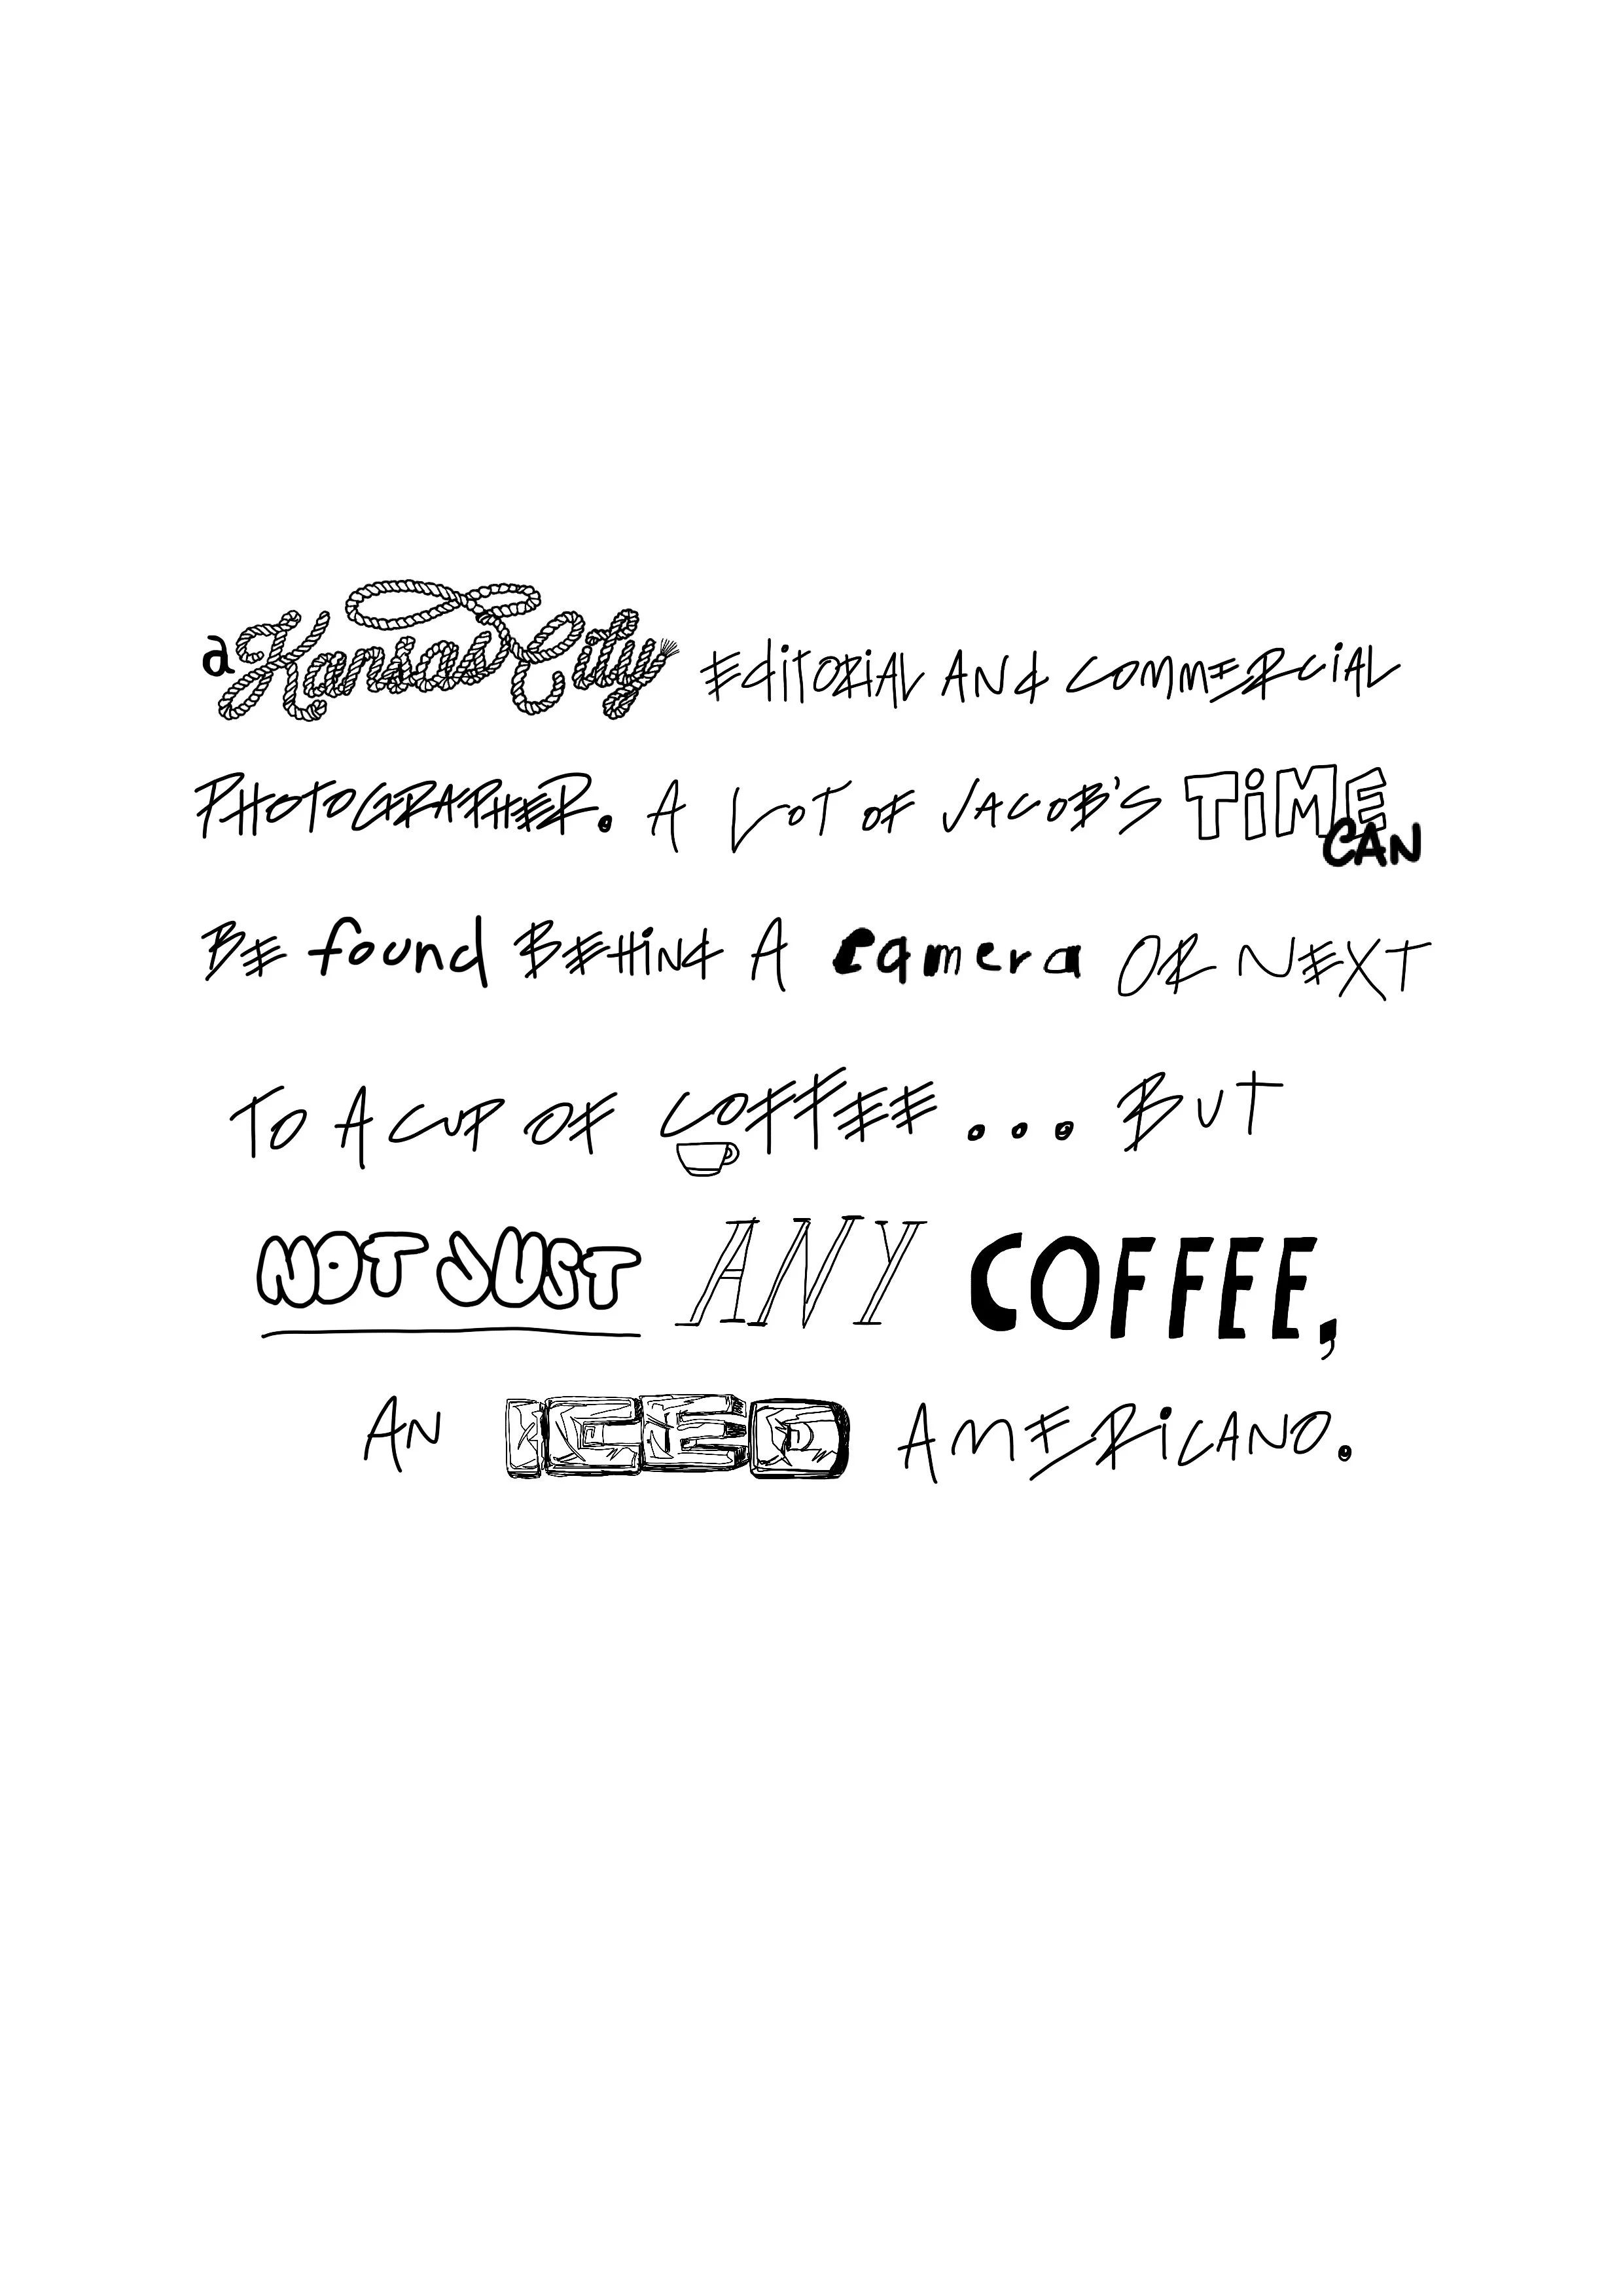 a Kansas City EdiTORiAL ANd COMMERCiAL
PHOTOGRAPHER. A LOT OF JACOB'S TiME CAN
BE found BEHiNd A camera OR NEXT
TO A CUP OF COFFEE... BUT
NOT JUST ANY COFFEE,
AN ICED AMERiCANO.